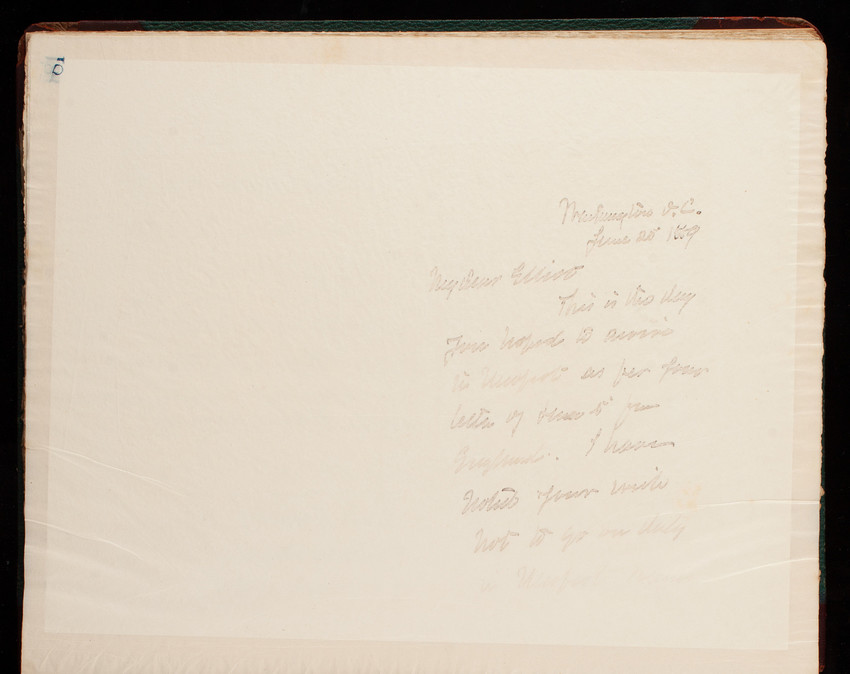 Washington D.C.
June 25 1889
My dear Elliot
This is the day
you hoped to arrive
in Newport as per your
letter of June 5 from
England. I have
noted your wish
not to go on duty
Newport